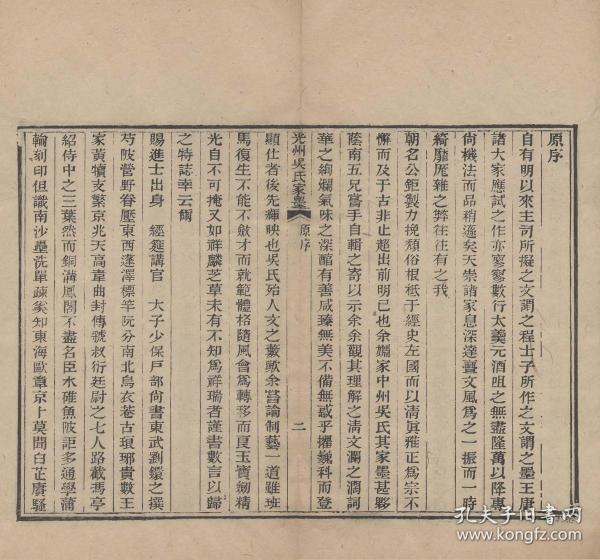 原序
自有明以來主司所擬之文謂之程士子所作之文謂之墨王唐
諸大家應試之作亦寥寥數行太羹元酒咀之無盡隆萬以降專
尙機法而品稍遜矣天崇諸家息深達亹文風爲之一振而一時
綺靡厖雜之弊往往有之我
朝名公鉅製力挽頹俗根柢于經史左國而以清眞雅正爲宗不
懈而及于古非止超出前明已也余媚家中州吳氏其家墨甚夥
蔭南五兄嘗手自輯之寄以示余余觀其理解之清文瀾之潤詞
華之絢爛氣味之深醇有善咸臻無美不備無或乎擢巍科而登
光州吳氏家墨 原序 二
顯仕者後先輝映也吳氏殆人文之藪歟余嘗論制藝一道雖班
馬復生不能不斂才而就範體格隨風會爲轉移而良玉寶劍精
光自不可掩又如祥麟芝草未有不知爲祥瑞者謹書數言以歸
之特誌幸云爾
賜進士出身 經筵講官 太子少保戶部尙書東武劉鐶之撰
芍陂營野眷壓東西蓬澤標竿阮分南北烏衣巷古琅琊貴數王
家黃犢支繁京兆天高韋曲封傳號叔衍廷尉之七人路截馮亭
紹侍中之三葉然而銅溝鳳閣不盡名臣水碓魚陂詎多通學蒲
輪刻印但識南沙壘洗單疎矣知東海歐章京卜莫問白芷賡騷
孔夫子旧书网